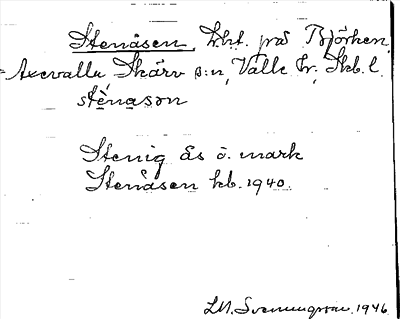 Stenåsen, lht. på Björken,
Axevalla, Skärv s:n, Valle hr, Skb. l.
stè̱na̱sən
Stenig ås o. mark
Stenåsen kb. 1940.
1946